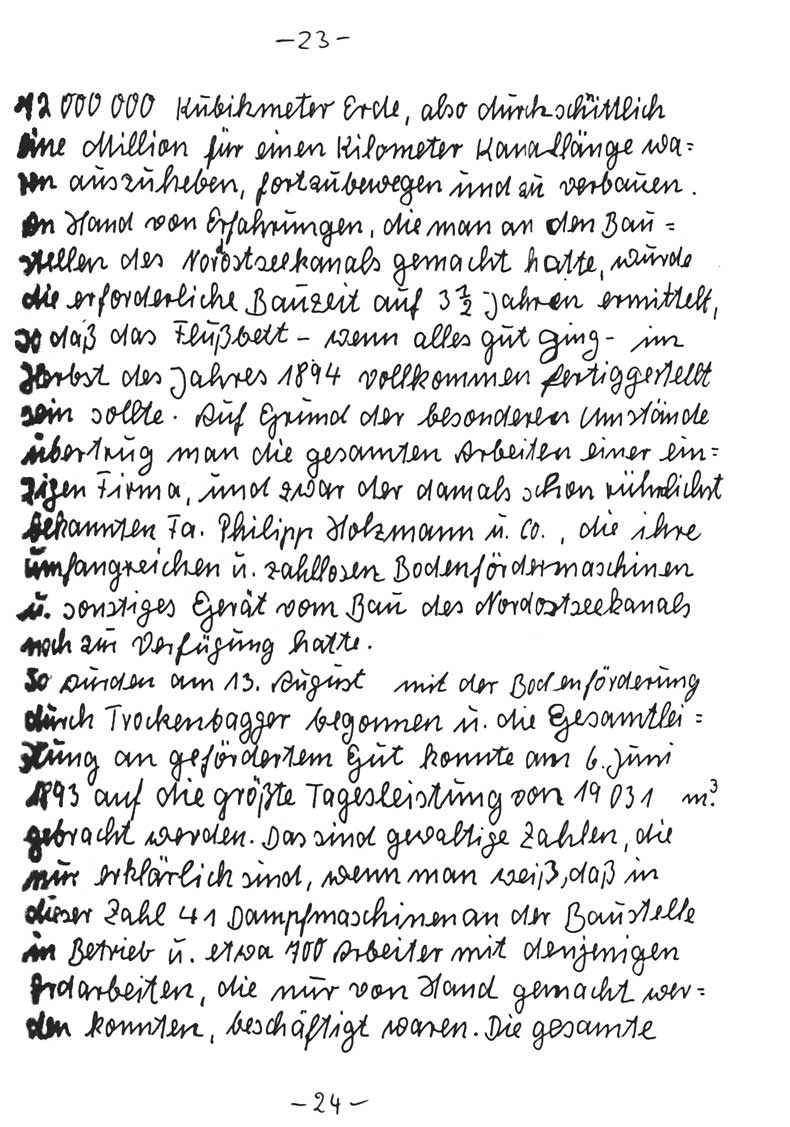 -23-
12 000 000 Kubikmeter Erde, also durchschnittlich
eine Million für einen Kilometer Kanallänge wa=
ren auszuheben, fortzubewegen und zu verbauen.
An Hand von Erfahrungen, die man an den Bau=
stellen des Nordostseekanals gemacht hatte, wurde
die erforderliche Bauzeit auf 3 1/2 Jahren ermittelt,
so daß das Flußbett - wenn alles gut ging - im
Herbst des Jahres 1894 vollkommen fertiggestellt
sein sollte. Auf Grund der besonderen Umstände
übertrug man die gesamten Arbeiten einer ein=
zigen Firma, und zwar der damals schon rühmlichst
bekannten Fa. Philipp Holzmann u. Co., die ihre
umfangreichen u. zahllosen Bodenfördermaschinen
u. sonstiges Gerät vom Bau des Nordostseekanals
noch zur Verfügung hatte.
So wurden am 13. August mit der Bodenförderung
durch Trockenbagger begonnen u. die Gesamtlei=
stung an gefördertem Gut konnte am 6. Juni
1893 auf die größte Tagesleistung von 19 031 m³.
gebracht werden. Das sind gewaltige Zahlen, die
nur erklärlich sind, wenn man weiß, daß in
dieser Zahl 41 Dampfmaschinen an der Baustelle
in Betrieb u. etwa 700 Arbeiter mit denjenigen
Erdarbeiten, die nur von Hand gemacht wer=
den konnten, beschäftigt waren. Die gesamte
-24-